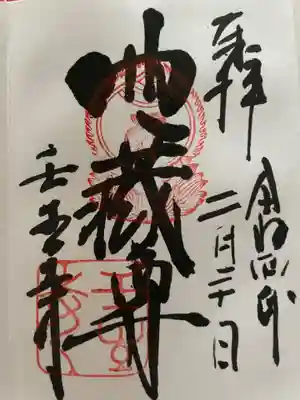 奉拝
令和四年
二月二十日
地蔵尊
壬生寺